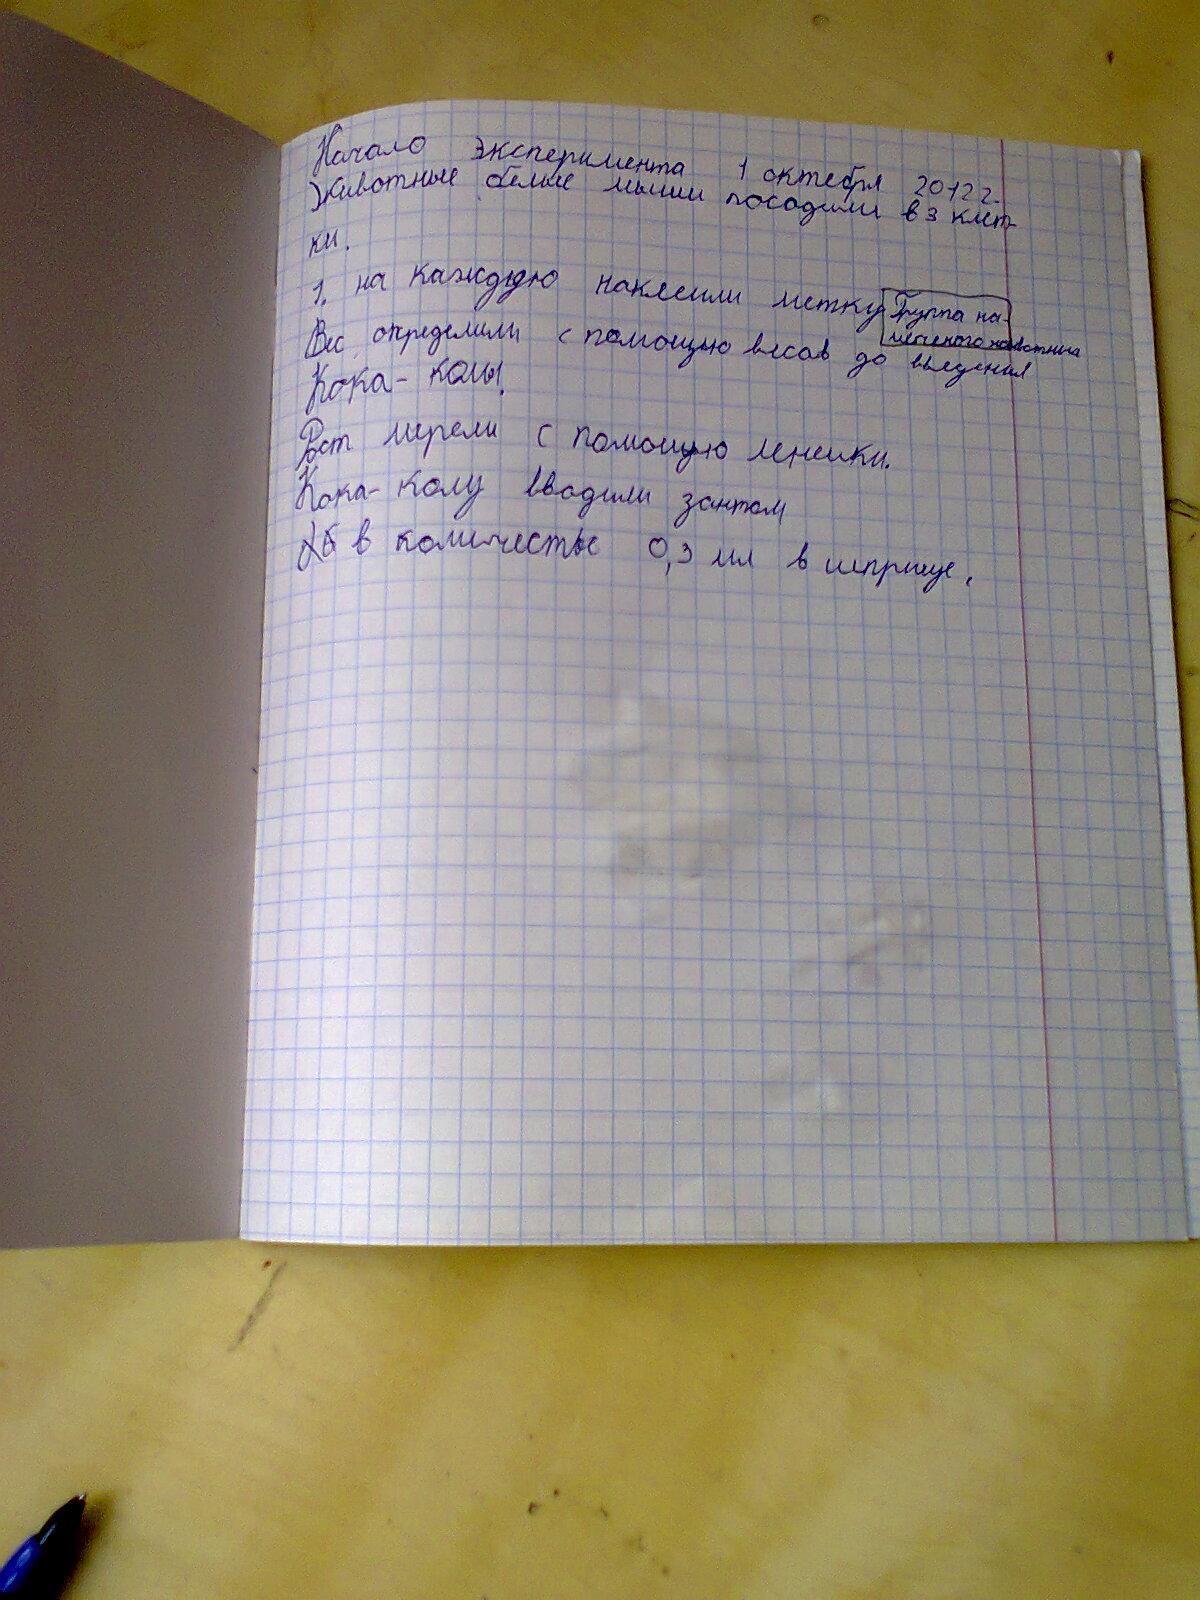 Начало эксперимента 1 октебря 2012 г.
Животные белые мыши посадили в 3 клет-
ки.
1. на каждую наклеили метку Группа на-
Вес определили с помощью весов до введения
Кока-колы.
Рост мерели с помощую ленейки.
Кока-колу вводили зантом
в количестве 0,3 мл в шприце.